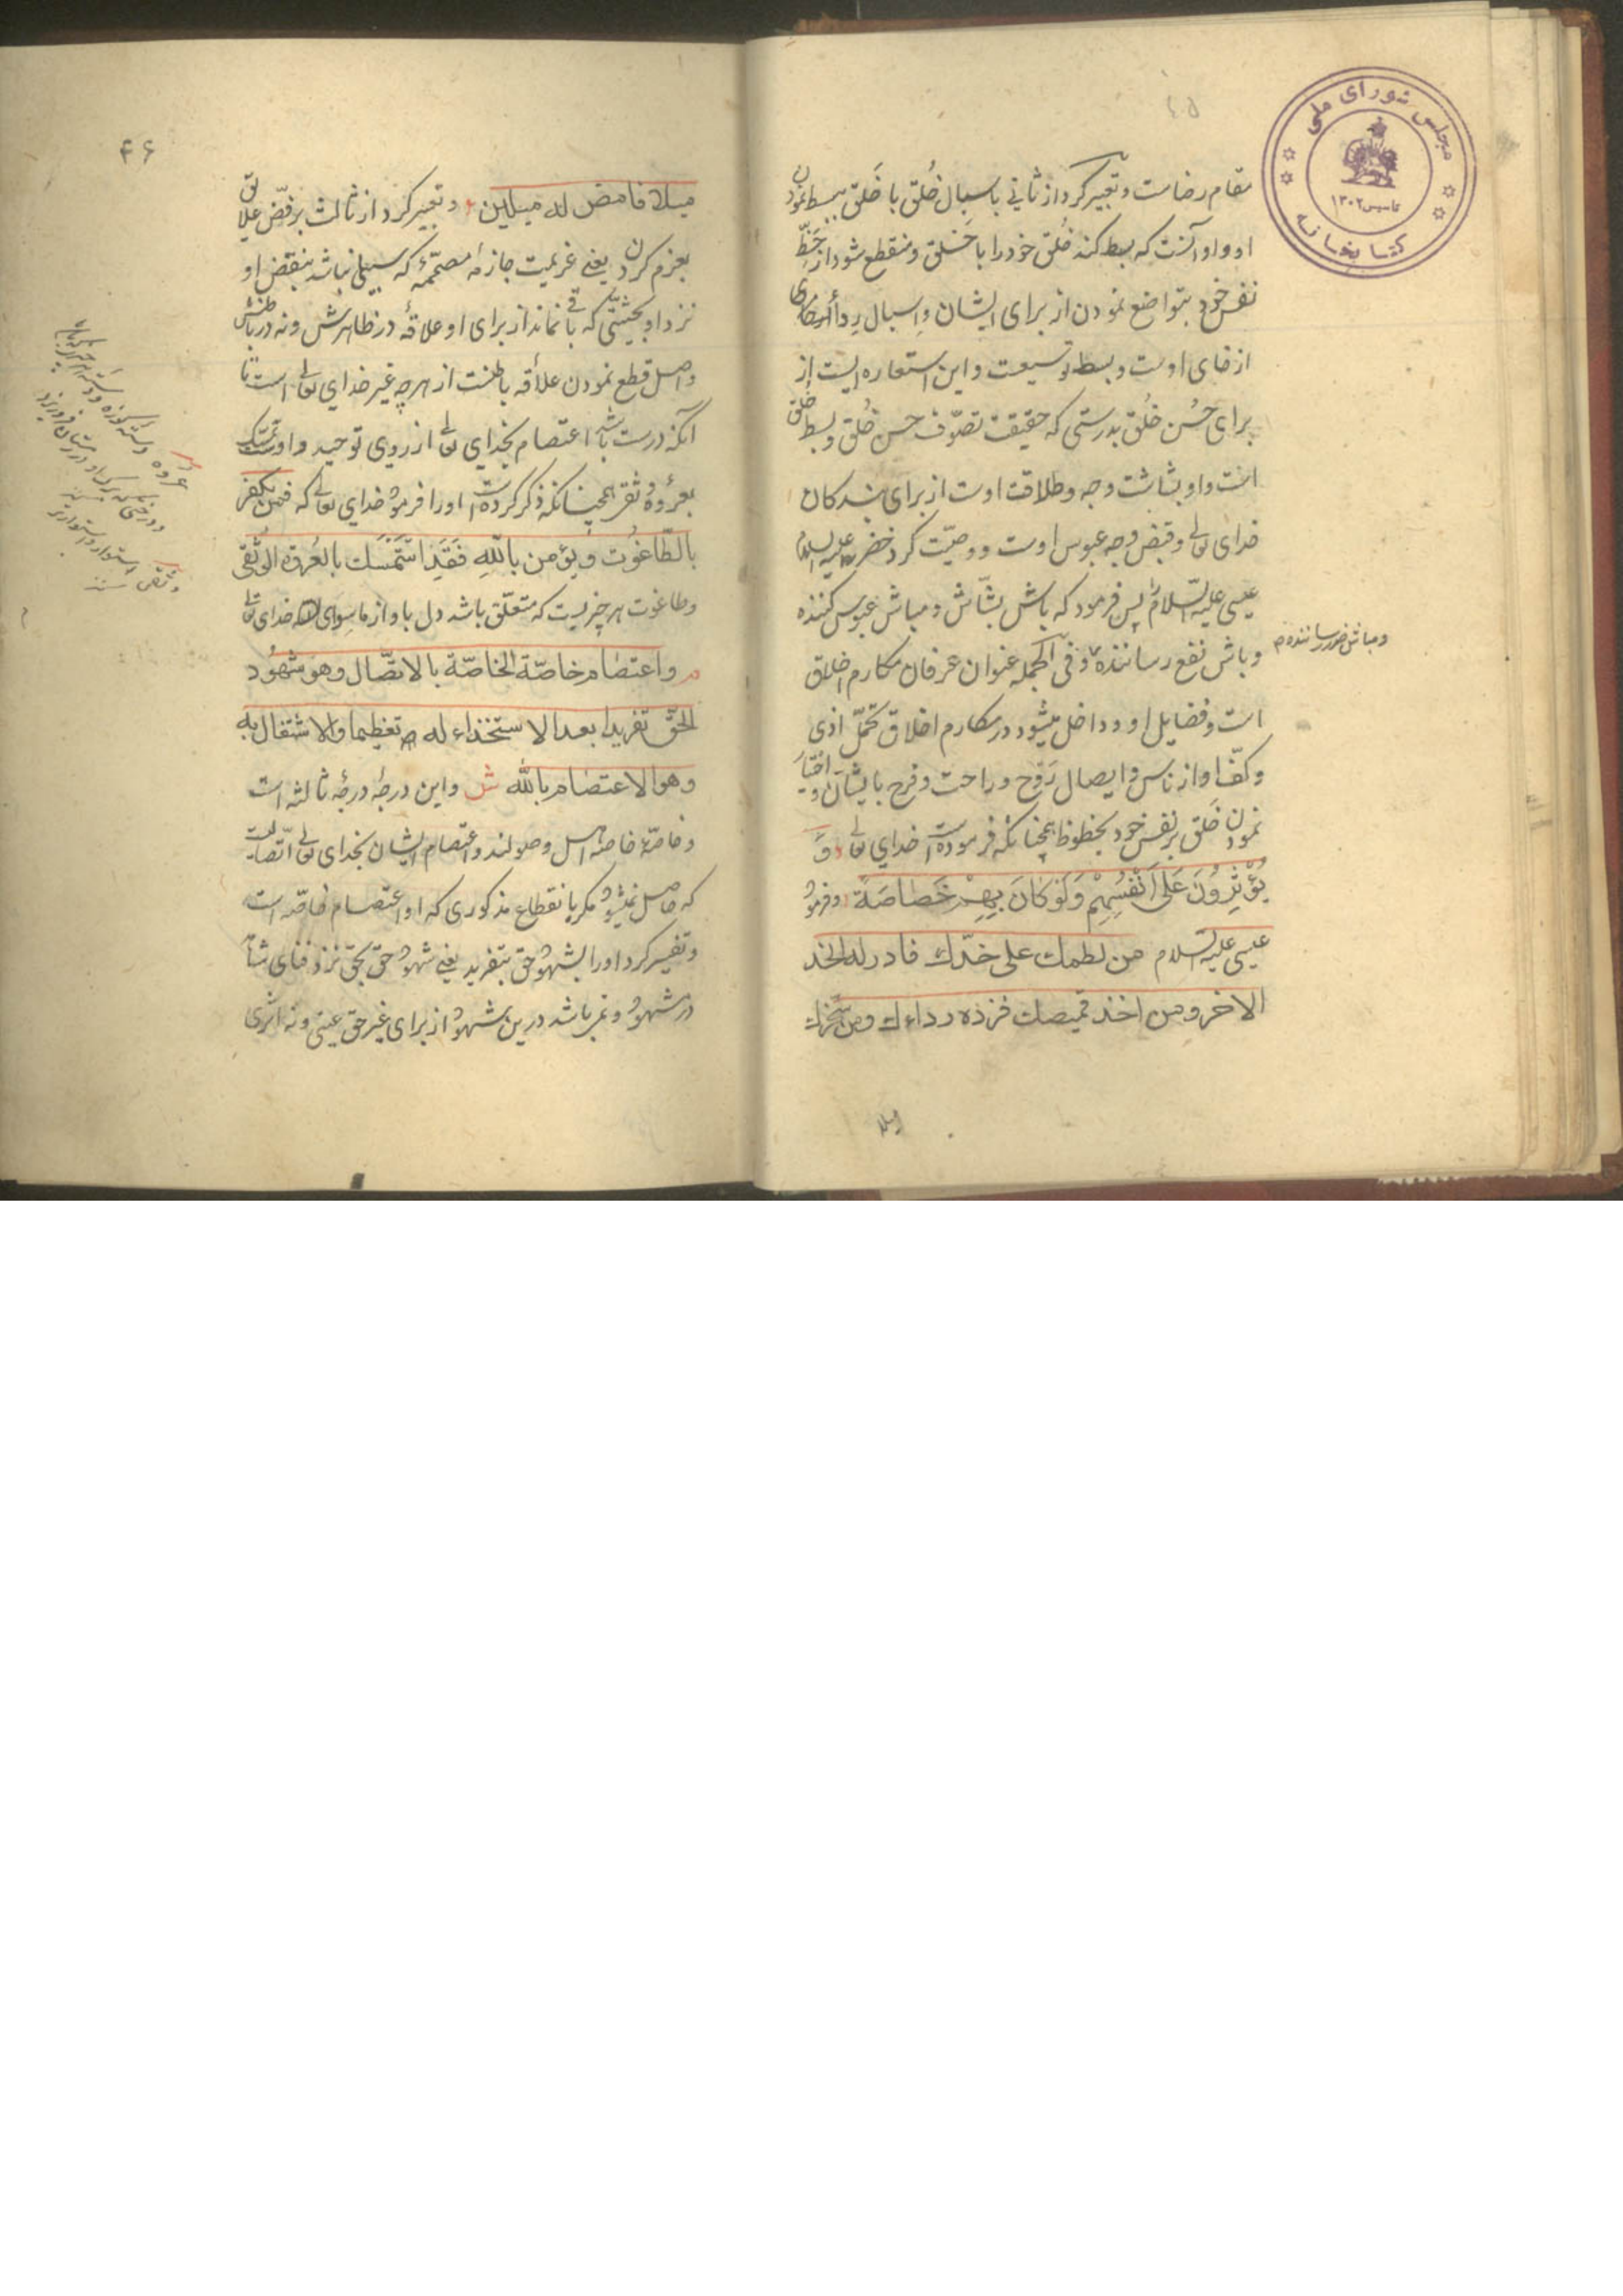 مجلس شورای ملی
تاسیس ۱۳۰۲
کتابخانه
۴۵
مقام رضاست و تعبیر کرد از ثانی باسبال خُلق با خَلق ببسط نمودن
او و او آنست که بسط کند خُلق خود را با خَلق و منقطع شود از حَظِّ
نفس خود بتواضع نمودن از برای ایشان و اسبال رِدا
از فای اوست و بسط توسیعت و این استعاره ایست از
برای حُسن خُلق بدرستی که حقیقت تصوّف حسن خُلق و بسط خلق
است و او بشاشت وجه و طلاقت اوست از برای بندکان
خدای تعالی و قبض وجه عبوس اوست و وصیّت کرد خضر علیه السلام
عیسی علیه السّلام پس فرمود که باش بشّاش و مباش عبوس کننده
و باش نفع رساننده و فی الجمله عنوان عرفان مکارم اخلاق
و مباش ضرر رساننده م
است و فضایل او و داخل میشود در مکارم اخلاق تحمّل اذی
و کفّ او از ناس و ایصال رَوح و راحت و فرح بایشان و اختیار
نمودن خَلق بر نفس خود بحظوظ همچنانکه فرموده است خدای تعالی وَ
یُؤْثِرُونَ عَلَی اَنْفُسِهِمْ وَلَوْ کَانَ بِهِمْ خَصَاصَة و فرمود
عیسی علیه السلام من لطمك علی خدّك فادر له الخد
الاخر و من اخذ قمیصك فزده رداءك و من سخّرك
میلا
۴۶
میلا فامض له میلین و تعبیر کرد از ثالث برفض علایق
بعزم کردن یعنی عزیمت جازمه مصمّمۀ که سبیلی نباشد بنقض او
نزد او بحیثیّتی که باقی نماند از برای او علاقۀ در ظاهرش و نه در باطنش
و اصل قطع نمودن علاقه باطنست از هر چه غیر خدای تعالی است تا
آنکه درست باشد اعتصام بخدای تعالی از روی توحید و او تمسّک
بعروة وثقی همچنانکه ذکر کرده است او را فرمود خدای تعالی که فمن یکفر
بالطّاغُوت وَ یؤمن باللّهِ فَقَدِ اسْتَمْسَك بالعُروة الوثقی
و طاغوت هر چیزیست که متعلّق باشد دل باو از ماسوای خدای تعالی
م واعتصام خاصّة الخاصّة بالاتصّال وهو شهُود
الحقّ تفریدا بعد الاستخذاء له تعظیما والاشتغال به
وهو الاعتصام بالله ش و این درجۀ درجۀ ثالثه است
و خاصّۀ خاصّه اهل وصولند و اعتصام ایشان بخدای تعالی اتّصالیست
که حاصل نمیشود مکر بانقطاع مذکوری که او اعتصام خاصّه است
و تفسیر کرد او را بشهود حق بتفرید یعنی شهود حق بحق نزد فنای شاهد
در شهود و نمیباشد درین شهود از برای غیر حق عینی و نه اثری
عروه دسته کوزه و
و درختی که
وثقی استوار